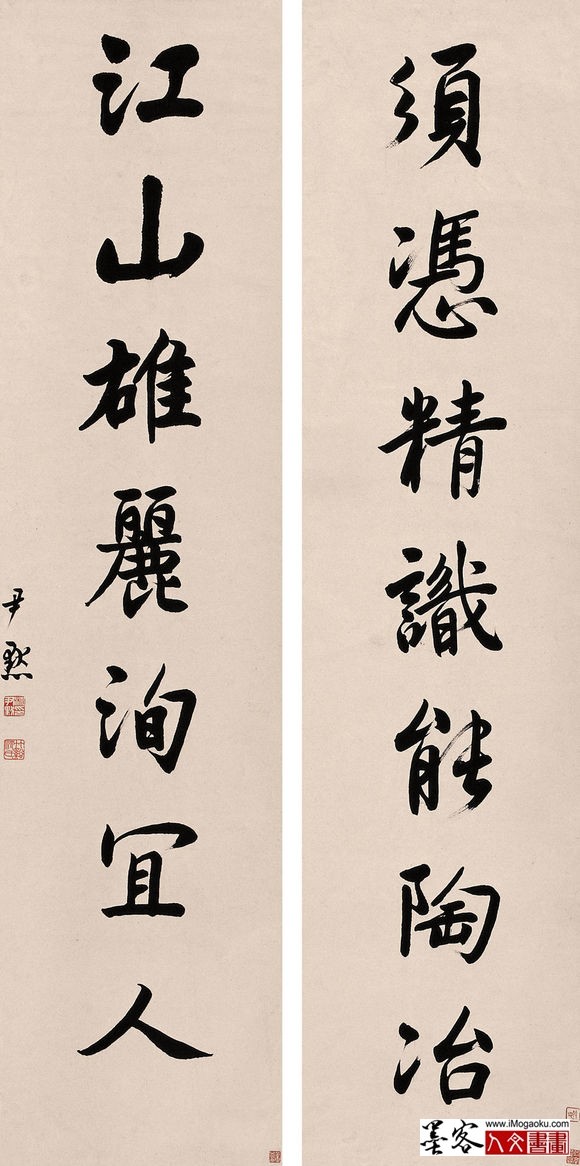 須憑精識能陶冶
江山雄麗洵宜人
尹默
墨客
www.iMogaoku.com
人文書畫